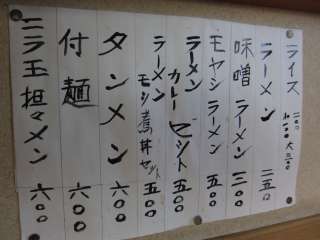 ライス 二〇〇 小一〇〇 大三〇〇
ラーメン 二五〇
味噌ラーメン 三〇〇
モヤシラーメン 五〇〇
ラーメン カレーセット 五〇〇
ラーメン モシ 丼セット 五〇〇
タンメン 六〇〇
付麺 六〇〇
ニラ玉担々メン 六〇〇